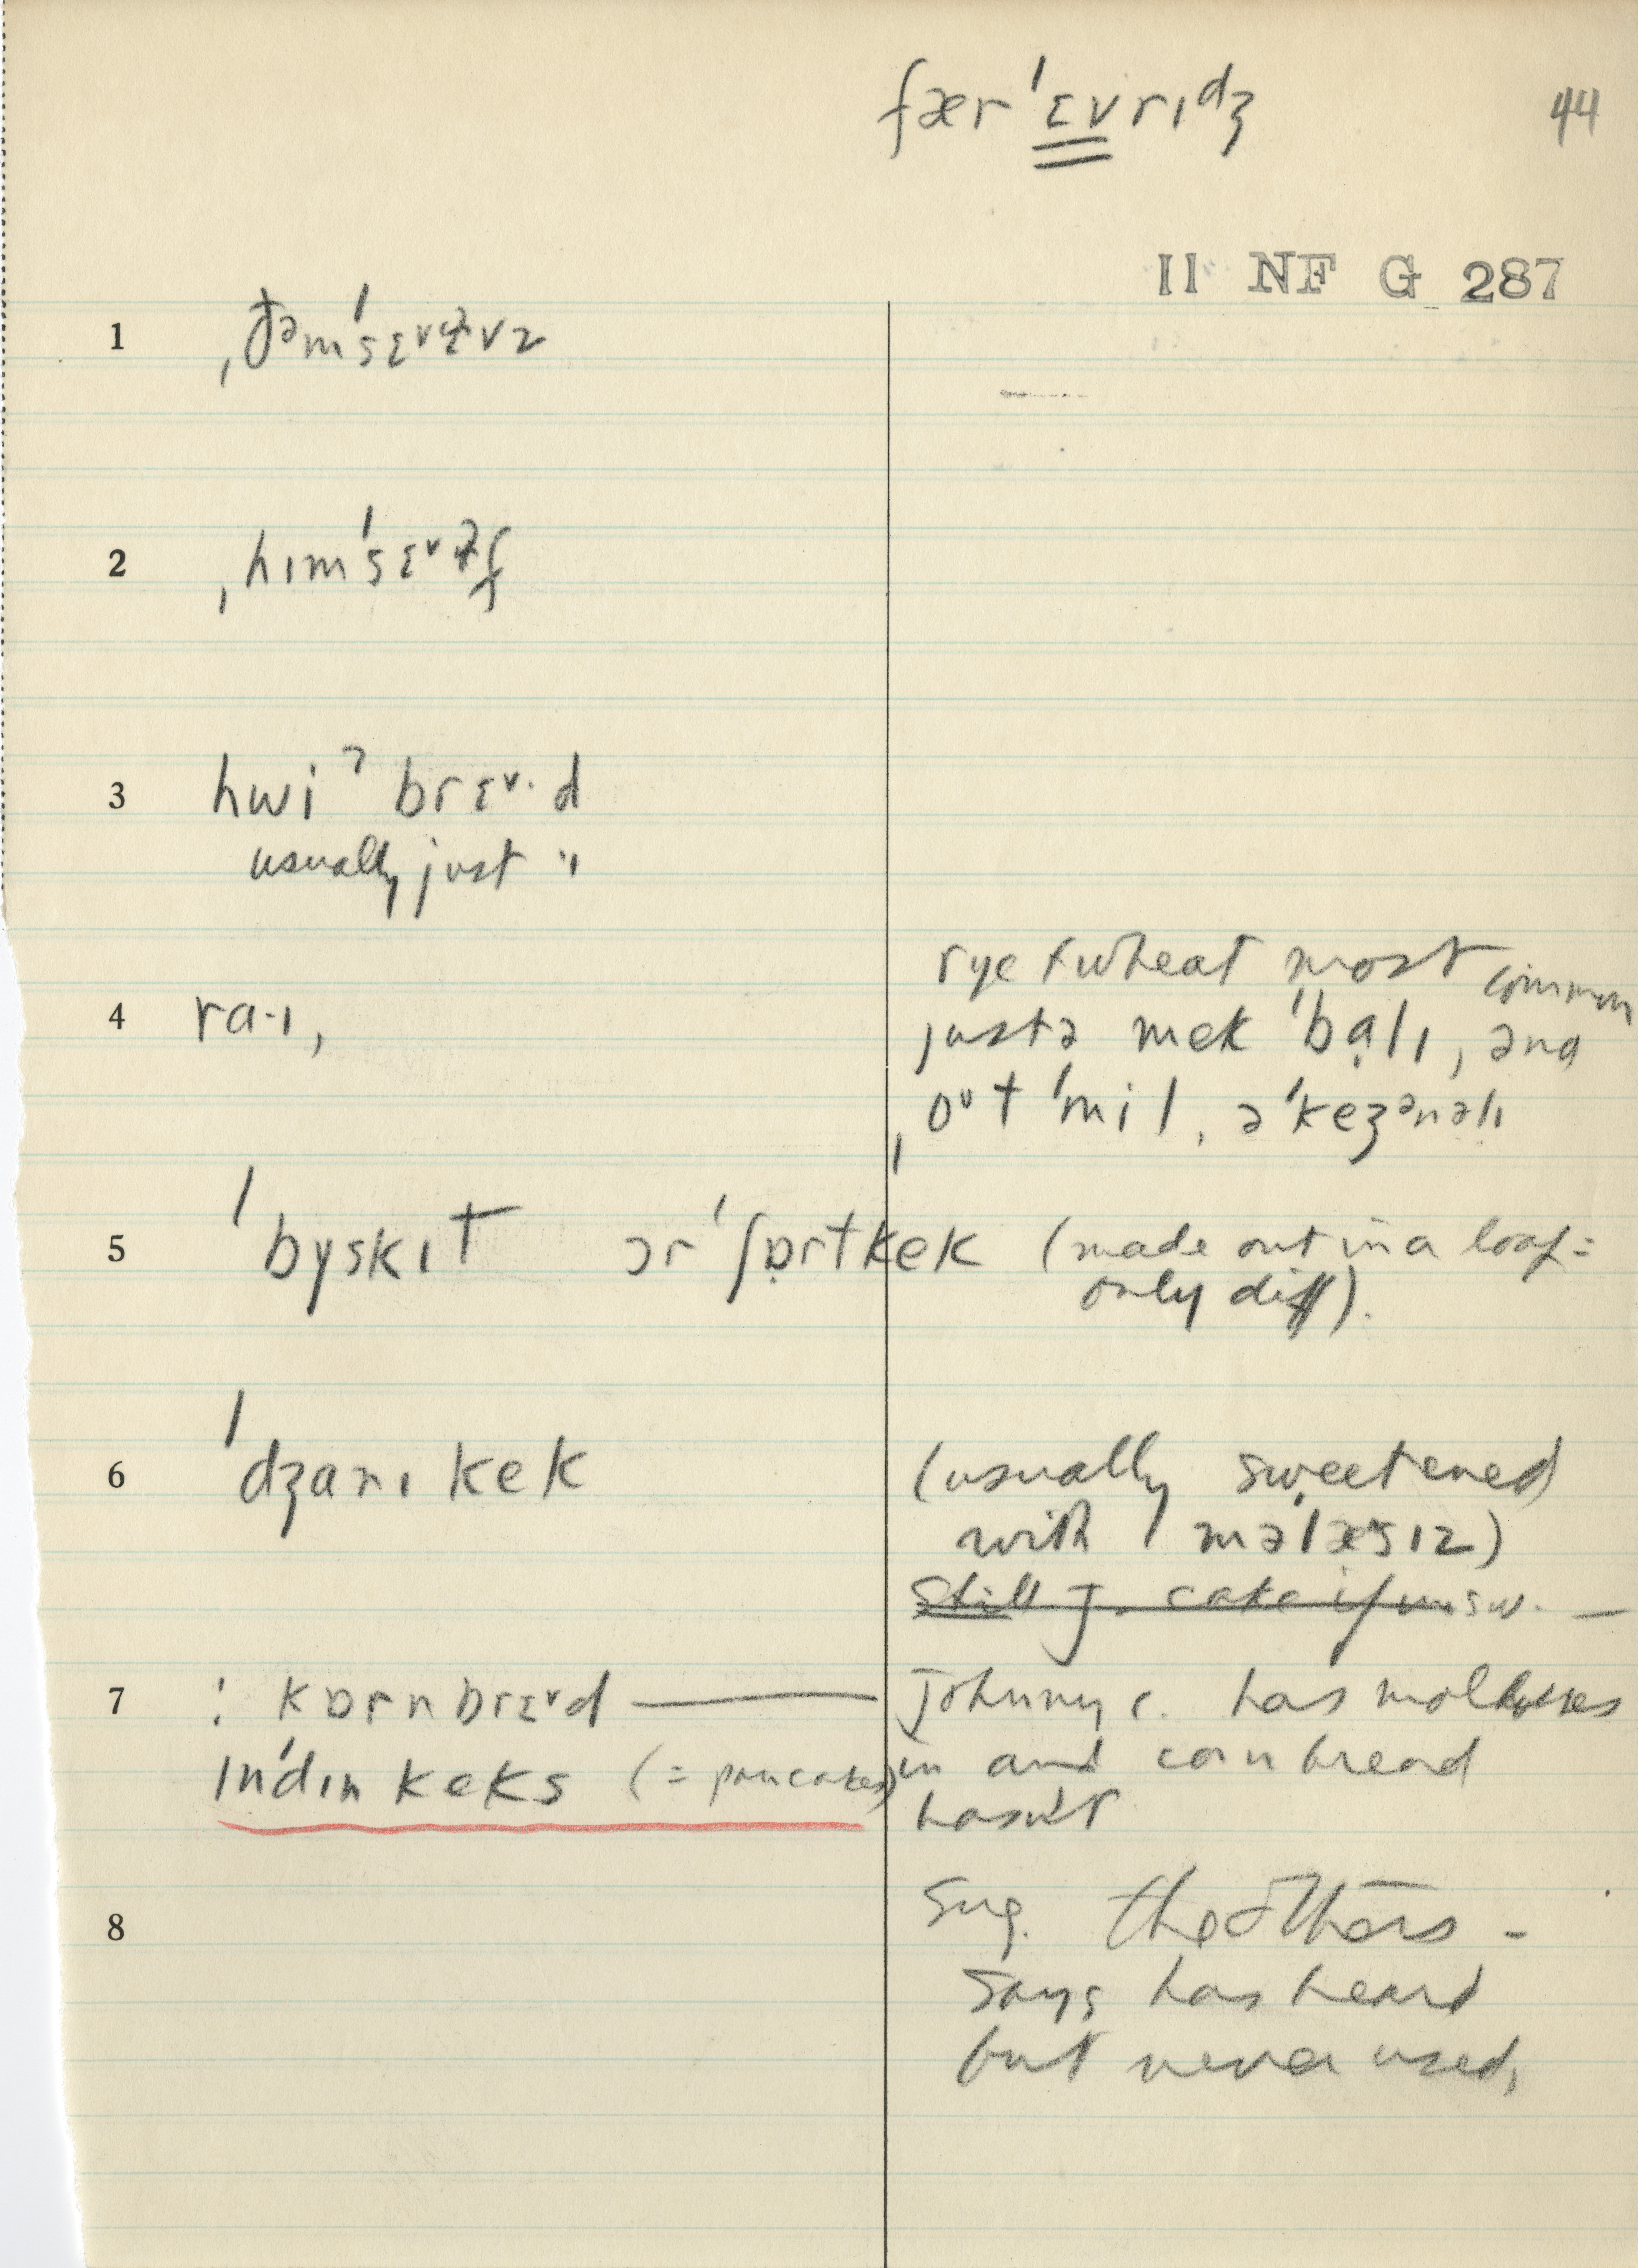 fær ˈɛvrɪdʒ
44
11 NF G 287
1 ˌðəmˈsɛvɫvz
2 ˌhɪmˈsɛvɫf
3 hwiʔ brɛv·d
usually just "
rye + wheat most common
4 ra·ɪ, justə mek ˈbalɪ, ənd
ˌoʊt ˈmil, əˈkeʒənəlɪ
5 ˈbyskɪt ɔr ˈʃɒrtkek (made out in a loaf =
only diff).
6 ˈdʒanɪ kek (usually sweetened
with məˈlæsɪz)
Still J. cake if unsw. —
7 : kɒrn brɛvd — Johnny c. has molasses
ɪnˈdɪn keks (= pancakes) in and corn bread
hasn't
8 Sug. the others -
says has heard
but never used,